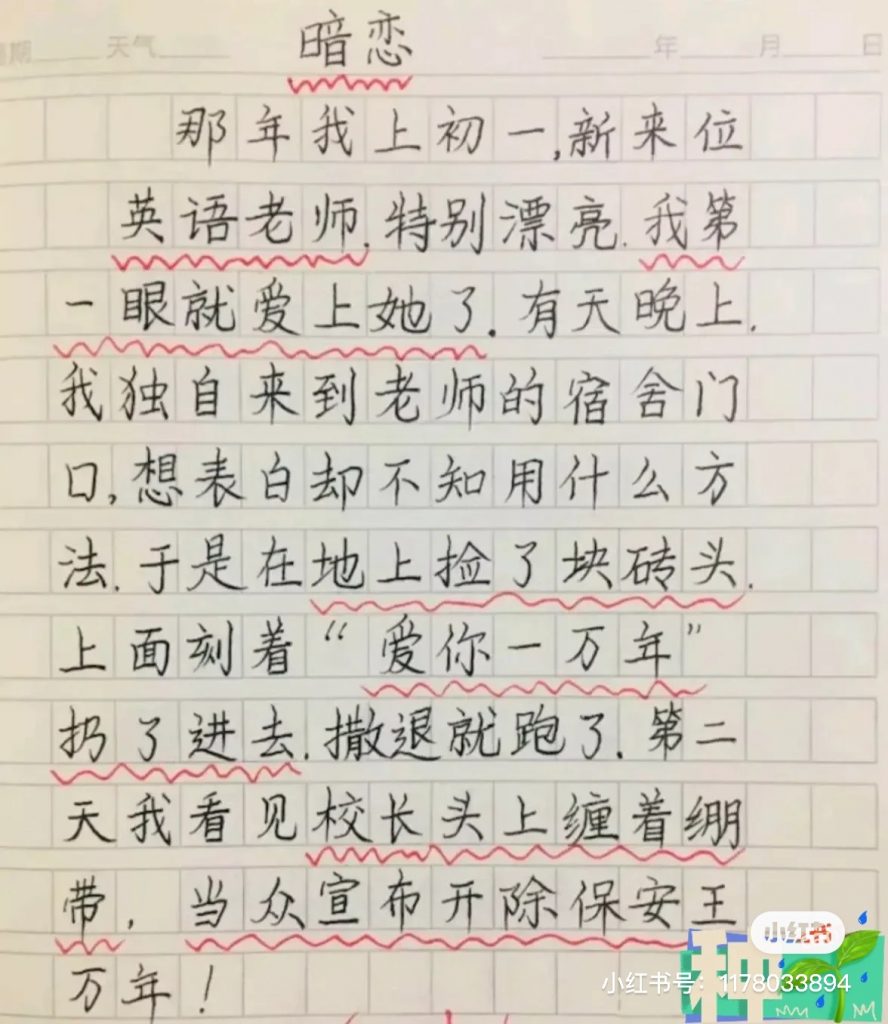 期 天气 暗恋 年 月 日
那年我上初一,新来位
英语老师.特别漂亮.我第
一眼就爱上她了.有天晚上.
我独自来到老师的宿舍门
口,想表白却不知用什么方
法.于是在地上捡了块砖头.
上面刻着“爱你一万年”
扔了进去.撒退就跑了.第二
天我看见校长头上缠着绷
带,当众宣布开除保安王
万年!
小红书
小红书号:1178033894
种